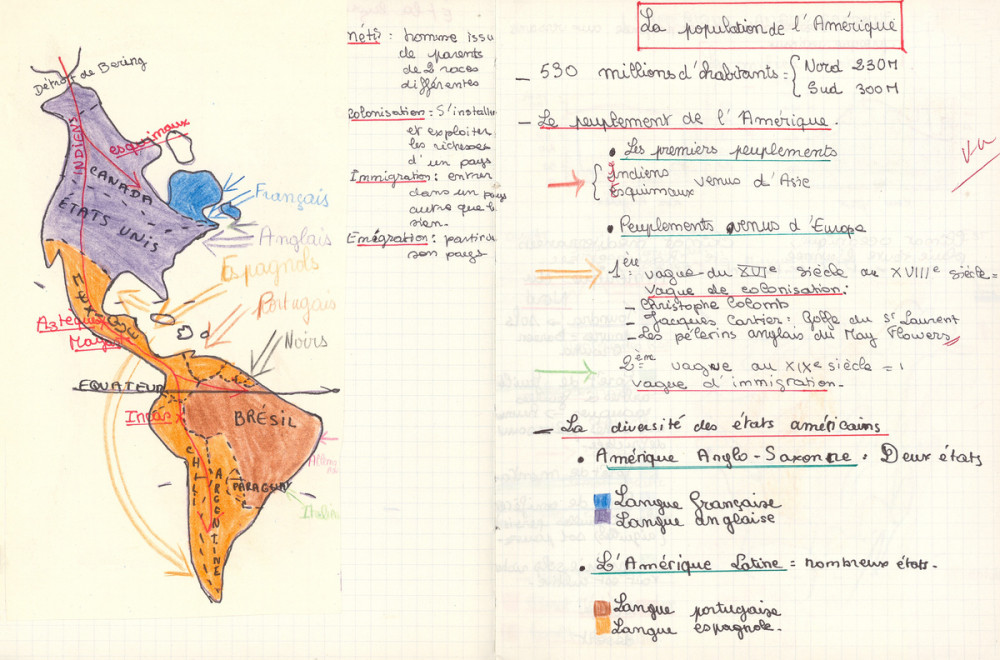 Détroit de Bering
INDIENS
esquimaux
CANADA
ÉTATS UNIS
Français
Anglais
Espagnols
Portugais
Noirs
MEXIQUE
Aztèques
Mayas
EQUATEUR
Incas
BRÉSIL
CHILI
ARGENTINE
PARAGUAY
Métis : homme issu
de parents
de 2 races
différentes
Colonisation : S'installer
et exploiter
les richesses
d'un pays
Immigration : entrer
dans un pays
autre que le
sien.
Emigration : partir de
son pays
La population de l'Amérique
- 530 millions d'habitants = { Nord 230M
Sud 300M
- Le peuplement de l'Amérique.
• Les premiers peuplements
{ Indiens
Esquimaux venus d'Asie
vu
• Peuplements venus d'Europe
1ère vague du XVIe siècle au XVIIIe siècle =
Vague de colonisation :
- Christophe Colomb
- Jacques Cartier : Golfe du St Laurent
- Les pélerins anglais du May Flowers
2ème vague au XIXe siècle =
vague d'immigration.
- La diversité des états américains
• Amérique Anglo-Saxonne : Deux états
Langue française
Langue anglaise
• L'Amérique Latine = nombreux états.
Langue portugaise
Langue espagnole.